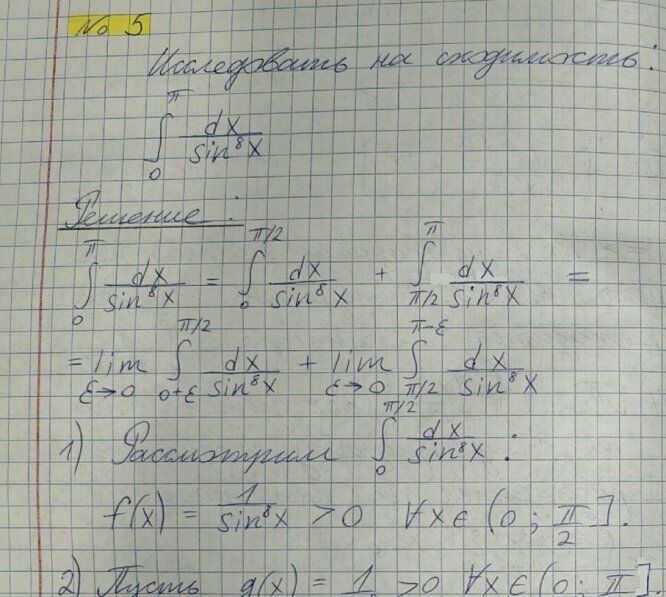 № 5
Исследовать на сходимость:
∫₀^π dx/sin⁸x
Решение:
∫₀^π dx/sin⁸x = ∫₀^{π/2} dx/sin⁸x + ∫_{π/2}^π dx/sin⁸x =
= lim_{ε→0} ∫_{0+ε}^{π/2} dx/sin⁸x + lim_{ε→0} ∫_{π/2}^{π-ε} dx/sin⁸x
1) Рассмотрим ∫₀^{π/2} dx/sin⁸x :
f(x) = 1/sin⁸x > 0 ∀x ∈ (0; π/2].
2) Пусть g(x) = 1 > 0 ∀x ∈ (0; π ].